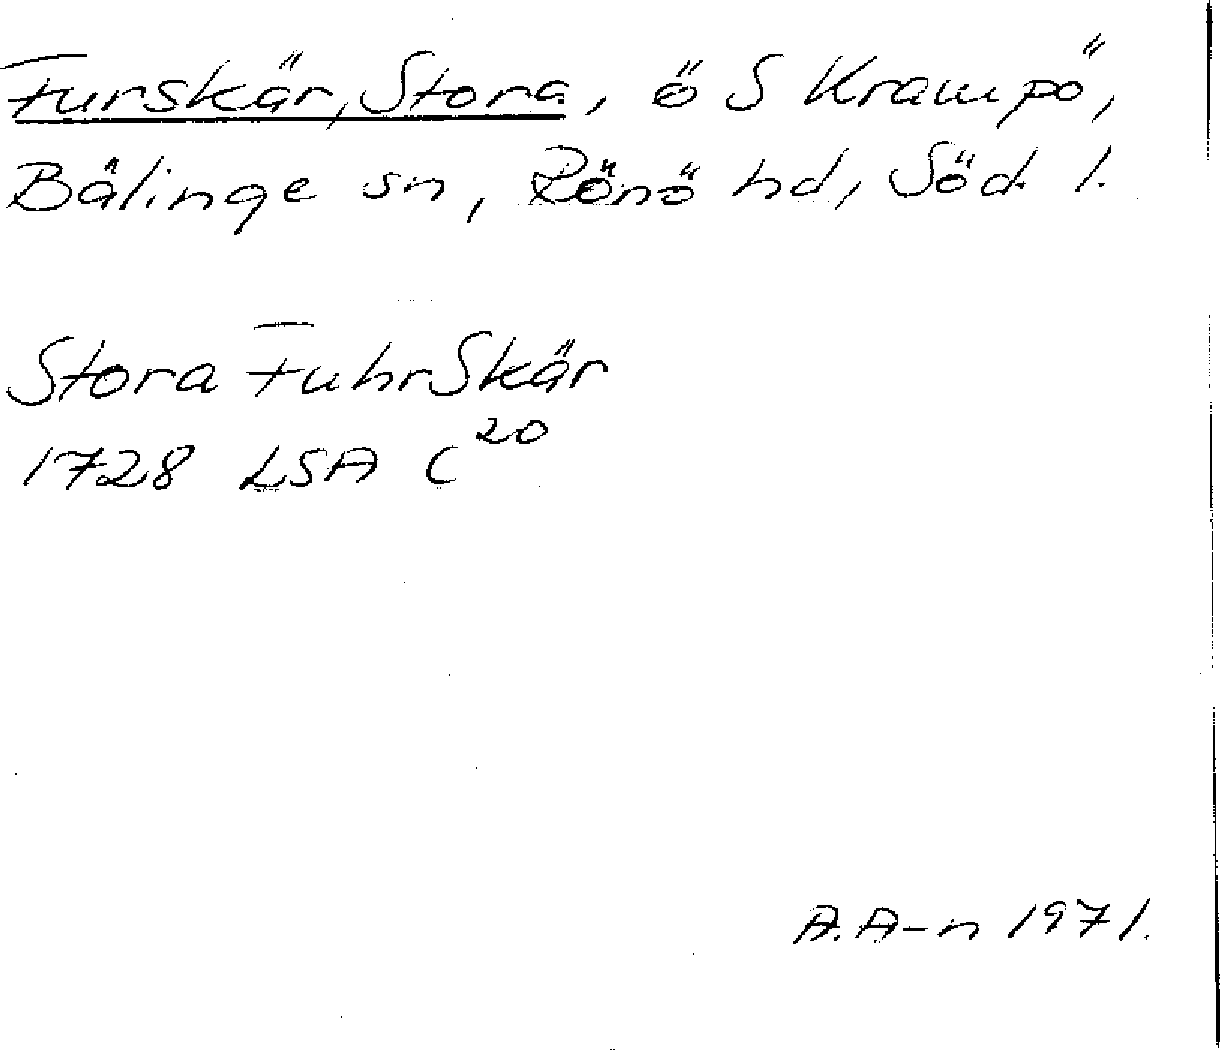 Furskär, Stora, ö S Krampö,
Bälinge sn, Rönö hd, Söd. l.
Stora FuhrSkär
1728 LSA C²⁰
A.A-n 1971.